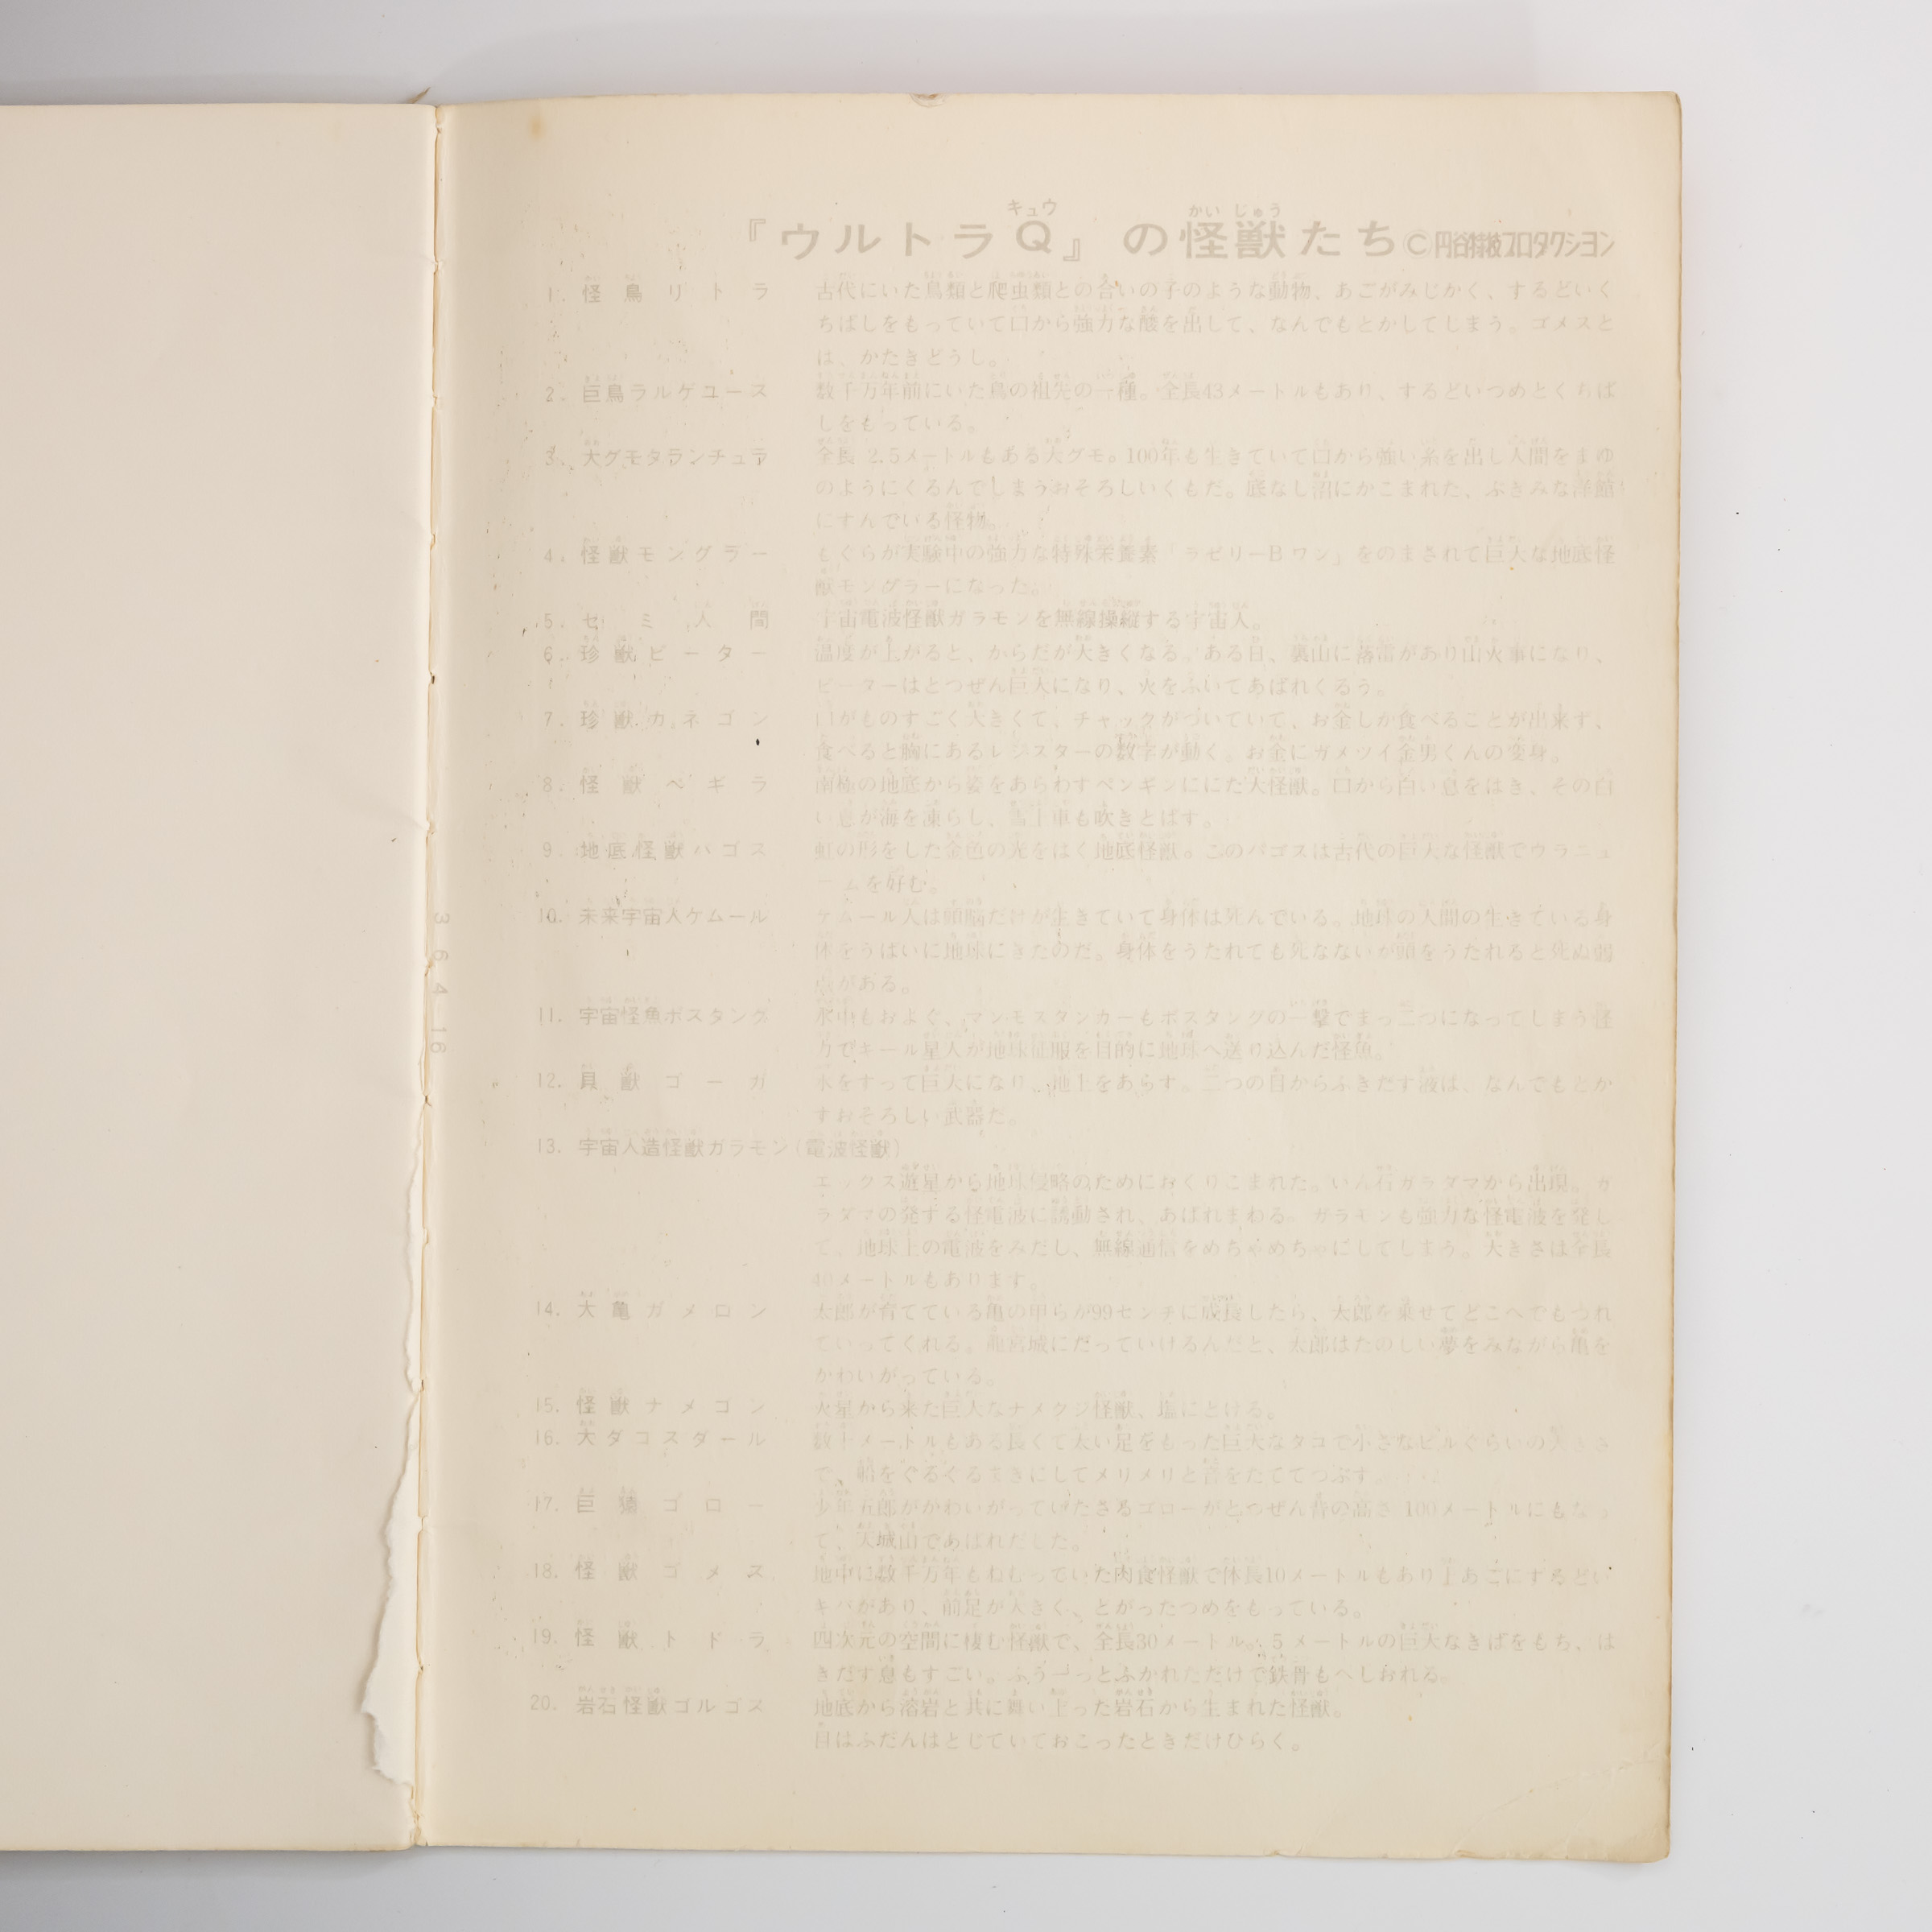 『ウルトラQ』の怪獣たち ©円谷特技プロダクション
1. 怪鳥リトラ 古代にいた鳥類と爬虫類との合いの子のような動物、あごがみじかく、するどいく
ちばしをもっていて口から強力な酸を出して、なんでもとかしてしまう。ゴメスと
は、かたきどうし。
2. 巨鳥ラルゲユース 数千万年前にいた鳥の祖先の一種。全長43メートルもあり、するどいつめとくちば
しをもっている。
3. 大グモタランチュラ 全長 2.5メートルもある大グモ。100年も生きていて口から強い糸を出し人間をまゆ
のようにくるんでしまうおそろしいくもだ。底なし沼にかこまれた、ぶきみな洋館
にすんでいる怪物。
4. 怪獣モングラー もぐらが実験中の強力な特殊栄養素「ラゼリーBワン」をのまされて巨大な地底怪
獣モングラーになった。
5. セミ人間 宇宙電波怪獣ガラモンを無線操縦する宇宙人。
6. 珍獣ピーター 温度が上がると、からだが大きくなる。ある日、裏山に落雷があり山火事になり、
ピーターはとつぜん巨大になり、火をふいてあばれくるう。
7. 珍獣カネゴン 口がものすごく大きくて、チャックがついていて、お金しか食べることが出来ず、
食べると胸にあるレジスターの数字が動く。お金にガメツイ金男くんの変身。
8. 怪獣ペギラ 南極の地底から姿をあらわすペンギンににた大怪獣。口から白い息をはき、その白
い息が海を凍らし、雪上車も吹きとばす。
9. 地底怪獣パゴス 虹の形をした金色の光をはく地底怪獣。このパゴスは古代の巨大な怪獣でウラニュ
ームを好む。
10. 未来宇宙人ケムール ケムール人は頭脳だけが生きていて身体は死んでいる。地球の人間の生きている身
体をうばいに地球にきたのだ。身体をうたれても死なないが頭をうたれると死ぬ弱
点がある。
11. 宇宙怪魚ボスタング 水中もおよぐ、マンモスタンカーもボスタングの一撃でまっ二つになってしまう怪
力でキール星人が地球征服を目的に地球へ送り込んだ怪魚。
12. 貝獣ゴーガ 水をすって巨大になり、地上をあらす。二つの目からふきだす液は、なんでもとか
すおそろしい武器だ。
13. 宇宙人造怪獣ガラモン(電波怪獣)
エックス遊星から地球侵略のためにおくりこまれた。いん石ガラダマから出現。ガ
ラダマの発する怪電波に誘動され、あばれまわる。ガラモンも強力な怪電波を発し
て、地球上の電波をみだし、無線通信をめちゃめちゃにしてしまう。大きさは全長
40メートルもあります。
14. 大亀ガメロン 太郎が育てている亀の甲らが99センチに成長したら、太郎を乗せてどこへでもつれ
ていってくれる。龍宮城にだっていけるんだと、太郎はたのしい夢をみながら亀を
かわいがっている。
15. 怪獣ナメゴン 火星から来た巨大なナメクジ怪獣、塩にとける。
16. 大ダコスダール 数十メートルもある長くて太い足をもった巨大なタコで小さなビルぐらいの大きさ
で、船をぐるぐるまきにしてメリメリと音をたててつぶす。
17. 巨猿ゴロー 少年五郎がかわいがっていたさるゴローがとつぜん背の高さ 100メートルにもなっ
て、大城山であばれだした。
18. 怪獣ゴメス 地中に数千万年もねむっていた肉食怪獣で体長10メートルもあり上あごにするどい
キバがあり、前足が大きく、とがったつめをもっている。
19. 怪獣トドラ 四次元の空間に棲む怪獣で、全長30メートル。5メートルの巨大なきばをもち、は
きだす息もすごい。ふうーっとふかれただけで鉄骨もへしおれる。
20. 岩石怪獣ゴルゴス 地底から溶岩と共に舞い上った岩石から生まれた怪獣。
目はふだんはとじていておこったときだけひらく。
364-16